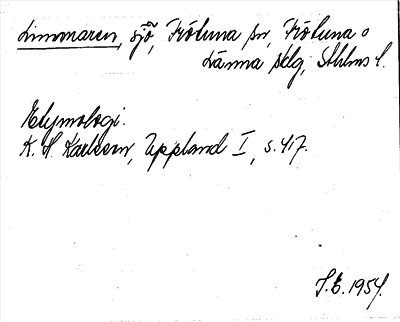 Limmaren, sjö, Fröluna sn, Fröluna o
Länna sklg, Sthlms l.
Etymologi:
K. H. Karlsson, Uppland I, s. 417.
S.E. 1954.